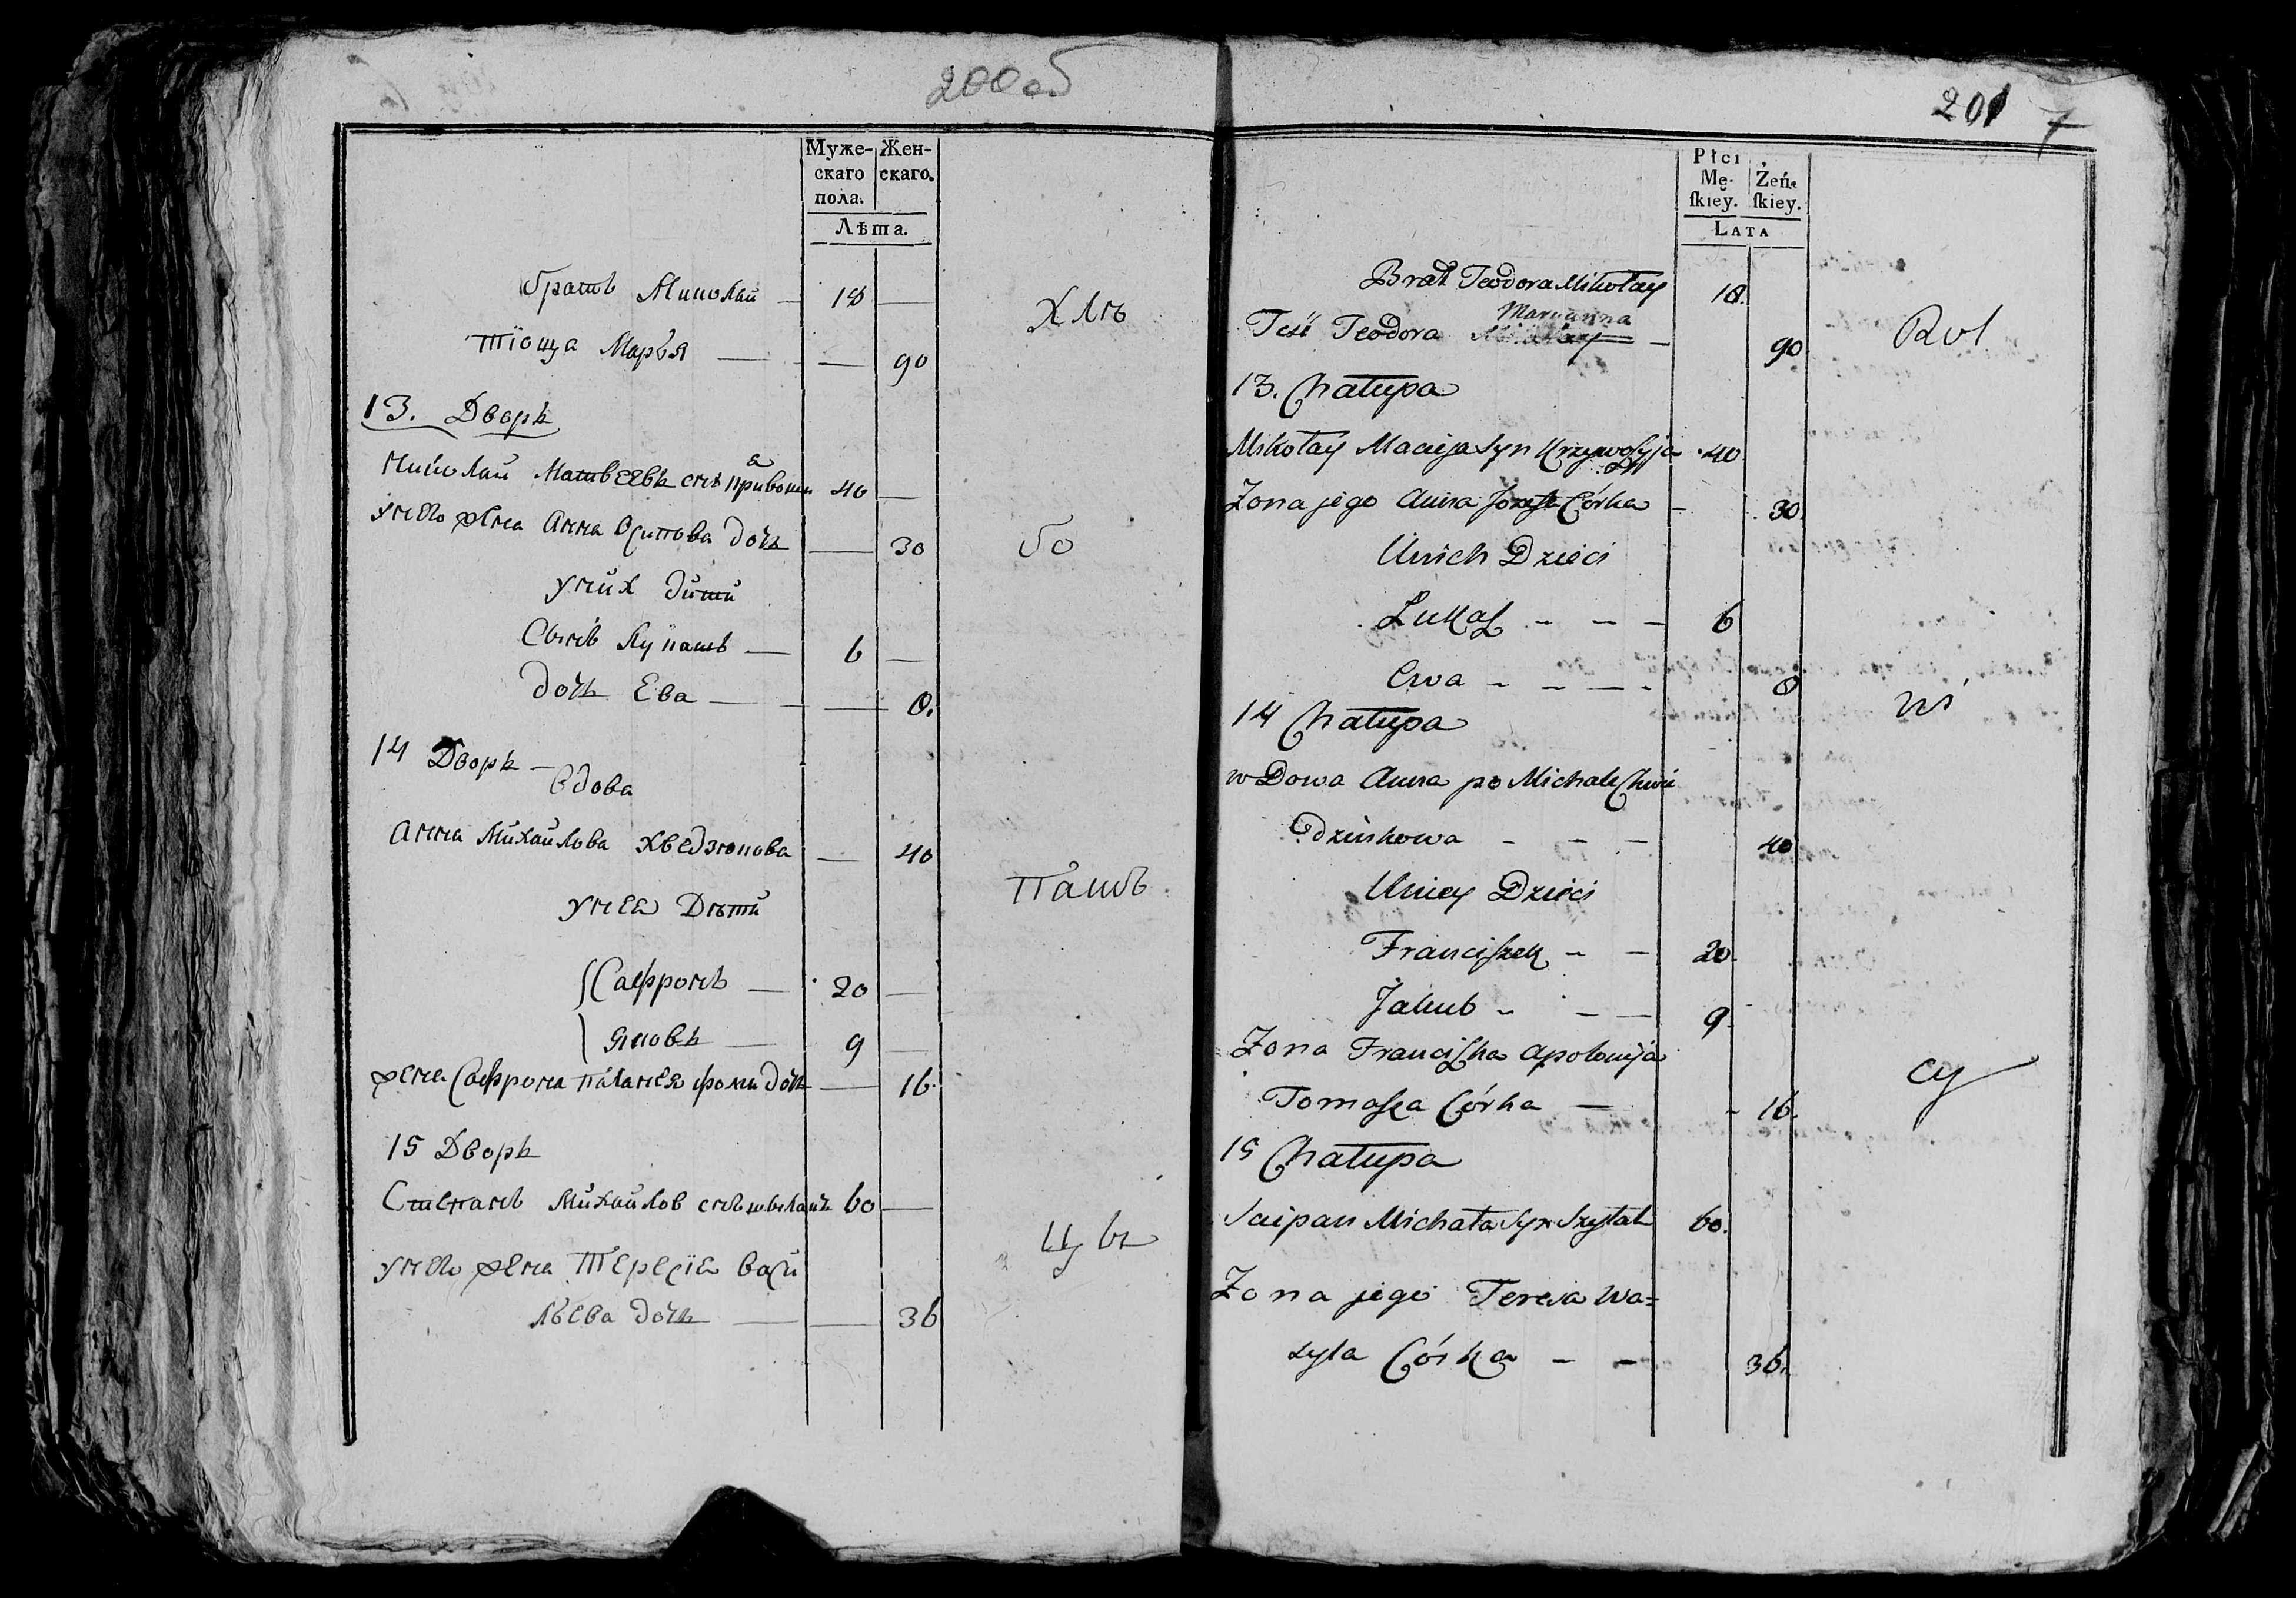 200об
Муже-
скаго
пола.
Жен-
скаго.
Лѣта.
братъ Миколай — 18 —
тіоща Марья — — 90
Хлѣ
13. Дворъ
Николай Матвеевъ снъ 40 —
унего жена Анна Осипова дочь — 30
бо
уних дити
Сынъ Лукашъ — 6 —
дочь Ева — — 0.
14 Дворъ —
вдова
Анна Михайлова Хведзюкова — 40
унея Дѣти
пашъ
Сафронъ — 20 —
Яковъ — 9 —
жена Сафрона фоми дочь — 16.
15 Дворъ
Степанъ Михайлов снъ 60 —
цы
унего жена Тересіа Васи
льева дочь — — 36
201 7
Płci
Mę-
ſkiey.
Żeń-
ſkiey.
LATA
Brat Teodora Mikołay 18.
Marianna
Teść Teodora — 90
Rol
13. Chałupa
Mikołay Macieja Syn Krzywoszyja 40.
Zona jego Anna Jozefa Córka — 30.
Unich Dzieci
Łukaſz - - - 6
Ewa - - - 0
ni
14 Chałupa
wDowa Anna po Michale Chwie
dziukowa - - - 40
Uniey Dzieci
Franciſzek - - 20.
Jakub - - - 9.
Zona Franciſzka Apolonija
Tomaſza Córka — - 16.
cy
15 Chałupa
Sciepan Michała Syn Szyłak 60.
Zona jego Teresa Wa=
zyla Córka - - 36.